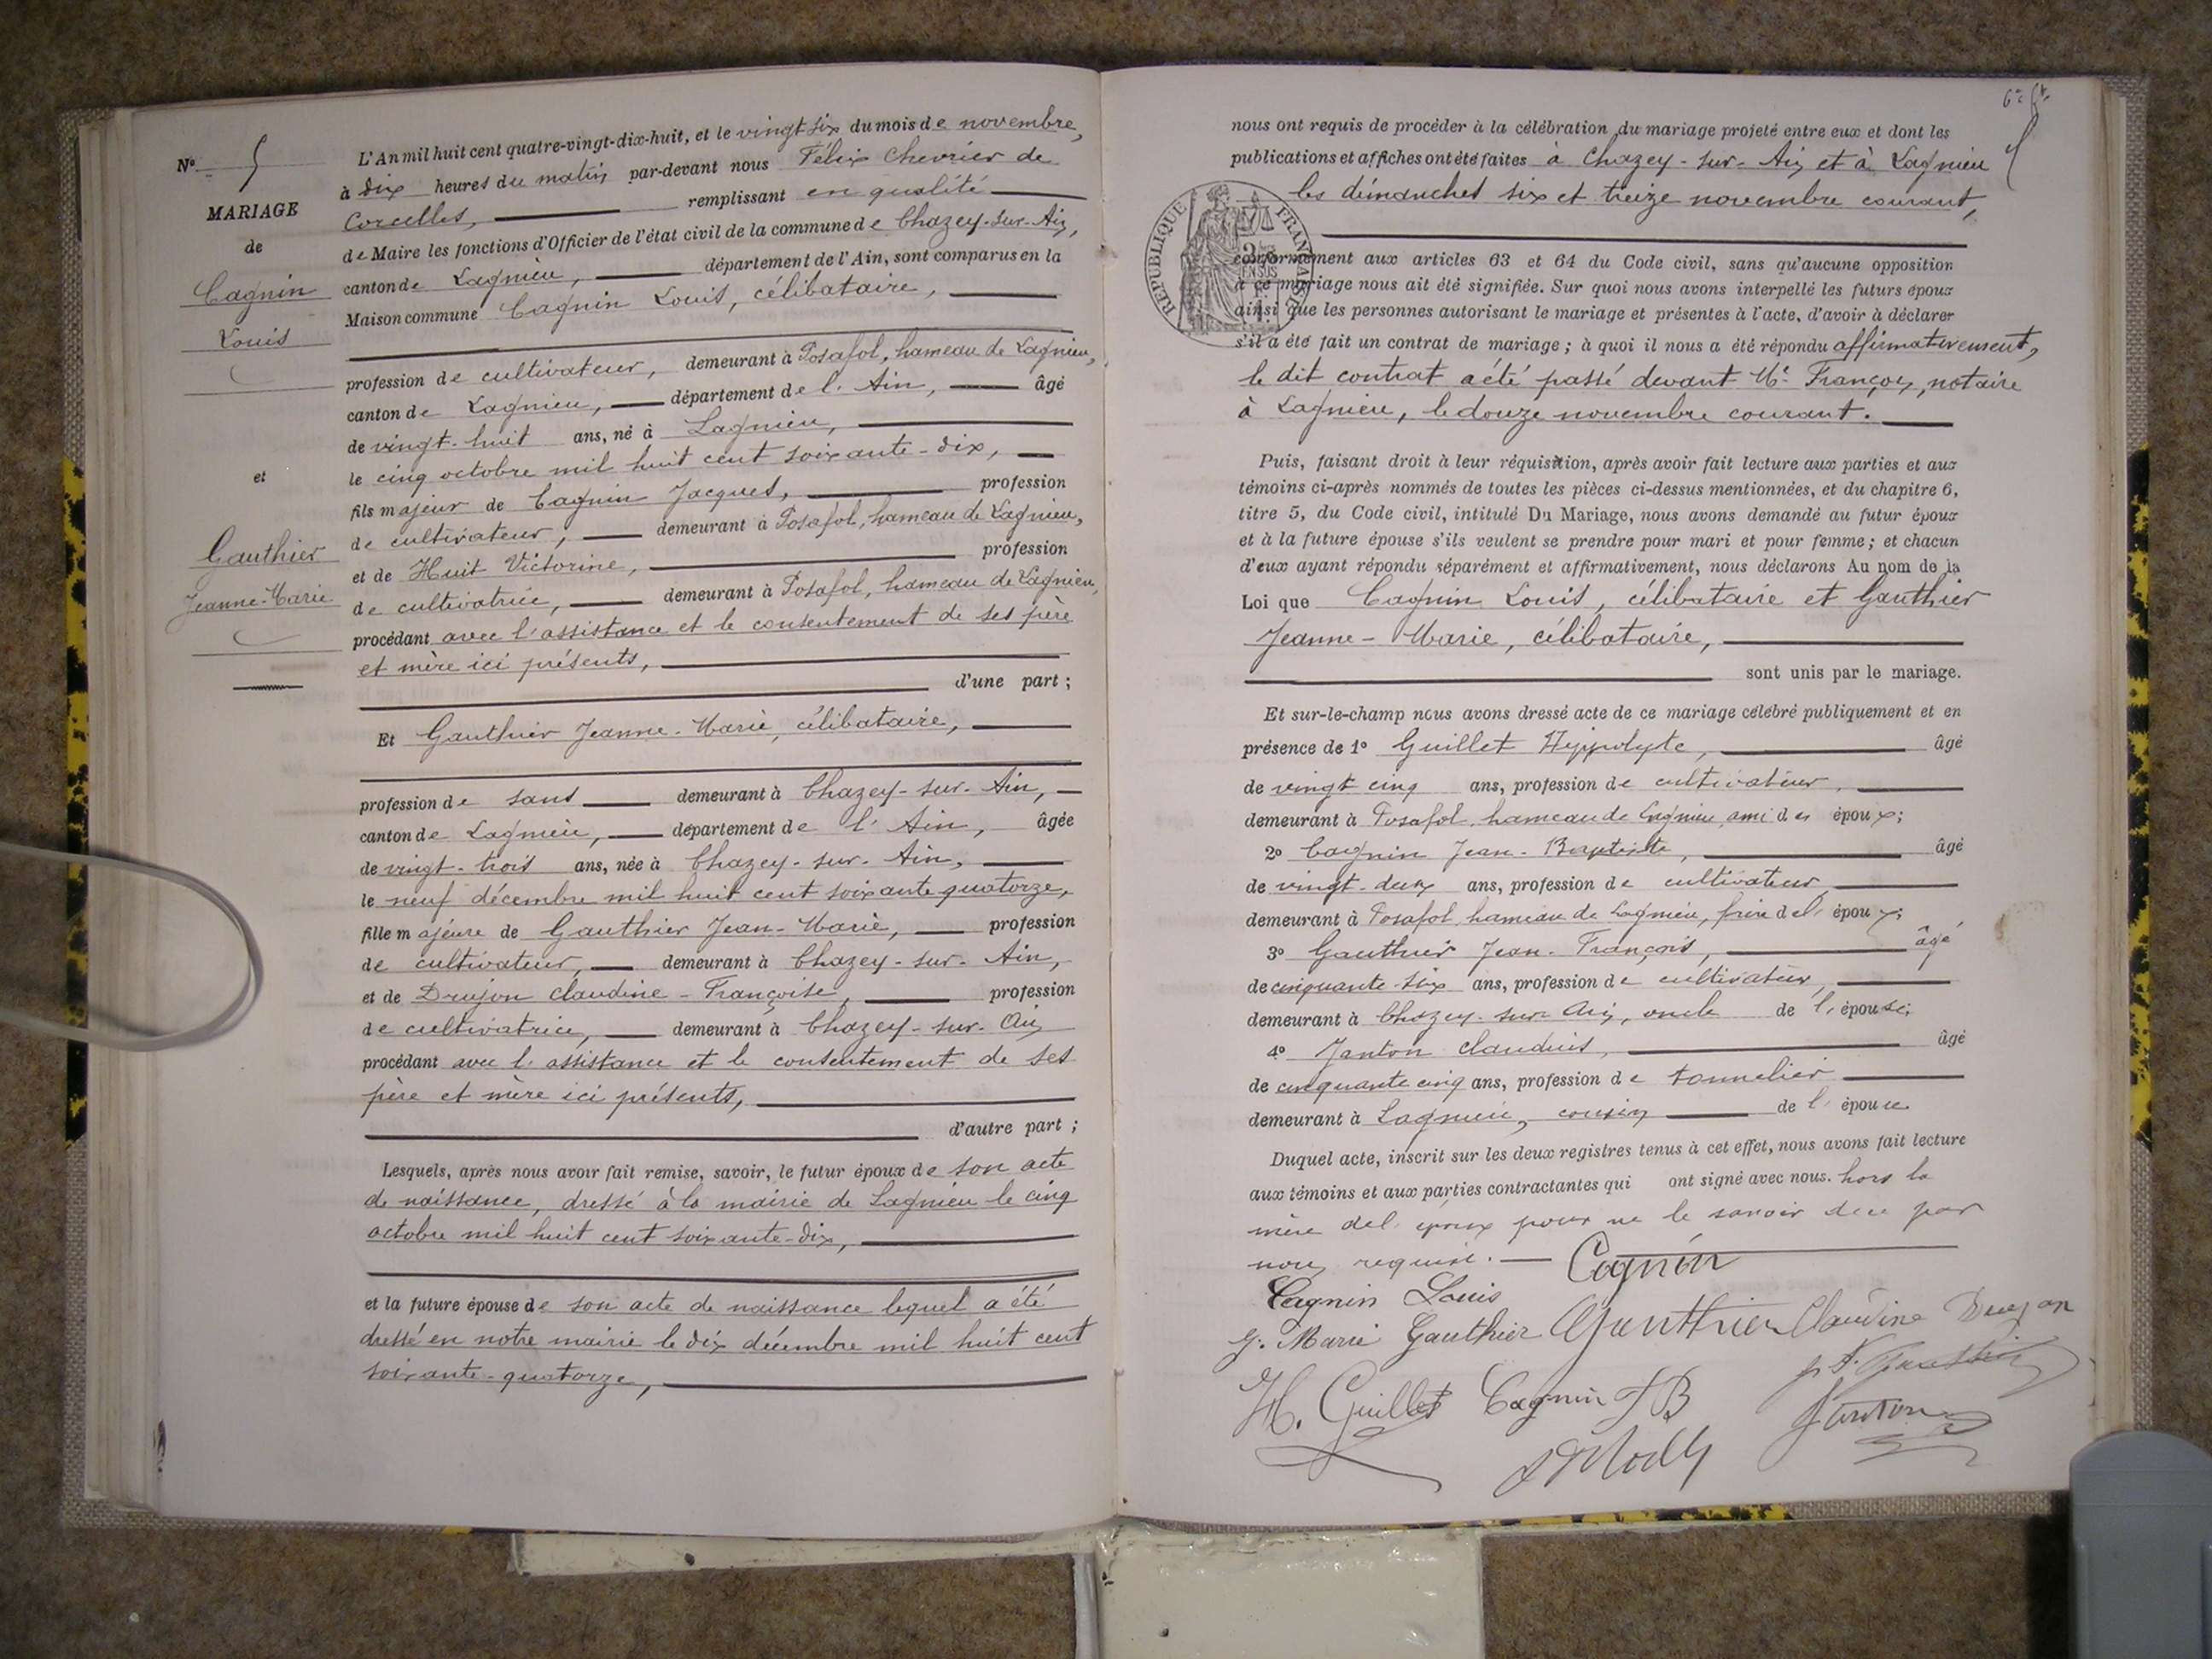 N° 5
MARIAGE
de
Cagnin
Louis
et
Gauthier
Jeanne-Marie
L'An mil huit cent quatre-vingt-dix-huit, et le vingt six du mois de novembre,
à dix heures du matin par-devant nous Félix Chevrier de
Corcelles, remplissant en qualité
de Maire les fonctions d'Officier de l'état civil de la commune de Chazey-sur-Ain,
canton de Lagnieu, département de l'Ain, sont comparus en la
Maison commune Cagnin Louis, célibataire,
profession de cultivateur, demeurant à Posafol, hameau de Lagnieu,
canton de Lagnieu, département de l'Ain, âgé
de vingt-huit ans, né à Lagnieu,
le cinq octobre mil huit cent soixante-dix,
fils majeur de Cagnin Jacques, profession
de cultivateur, demeurant à Posafol, hameau de Lagnieu,
et de Huit Victorine, profession
de cultivatrice, demeurant à Posafol, hameau de Lagnieu,
procédant avec l'assistance et le consentement de ses père
et mère ici présents,
d'une part ;
Et Gauthier Jeanne-Marie, célibataire,
profession de sans demeurant à Chazey-sur-Ain,
canton de Lagnieu, département de l'Ain, âgée
de vingt-trois ans, née à Chazey-sur-Ain,
le neuf décembre mil huit cent soixante quatorze,
fille majeure de Gauthier Jean-Marie, profession
de cultivateur, demeurant à Chazey-sur-Ain,
et de Drujon Claudine-Françoise, profession
de cultivatrice, demeurant à Chazey-sur-Ain
procédant avec l'assistance et le consentement de ses
père et mère ici présents,
d'autre part ;
Lesquels, après nous avoir fait remise, savoir, le futur époux de son acte
de naissance, dressé à la mairie de Lagnieu le cinq
octobre mil huit cent soixante-dix,
et la future épouse de son acte de naissance lequel a été
dressé en notre mairie le dix décembre mil huit cent
soixante-quatorze,
nous ont requis de procéder à la célébration du mariage projeté entre eux et dont les
publications et affiches ont été faites à Chazey-sur-Ain et à Lagnieu
les dimanches six et treize novembre courant,
RÉPUBLIQUE FRANÇAISE
conformément aux articles 63 et 64 du Code civil, sans qu'aucune opposition
à ce mariage nous ait été signifiée. Sur quoi nous avons interpellé les futurs époux
ainsi que les personnes autorisant le mariage et présentes à l'acte, d'avoir à déclarer
s'il a été fait un contrat de mariage ; à quoi il nous a été répondu affirmativement,
le dit contrat a été passé devant Me Françon, notaire
à Lagnieu, le douze novembre courant.
Puis, faisant droit à leur réquisition, après avoir fait lecture aux parties et aux
témoins ci-après nommés de toutes les pièces ci-dessus mentionnées, et du chapitre 6,
titre 5, du Code civil, intitulé Du Mariage, nous avons demandé au futur époux
et à la future épouse s'ils veulent se prendre pour mari et pour femme ; et chacun
d'eux ayant répondu séparément et affirmativement, nous déclarons Au nom de la
Loi que Cagnin Louis, célibataire et Gauthier
Jeanne-Marie, célibataire,
sont unis par le mariage.
Et sur-le-champ nous avons dressé acte de ce mariage célébré publiquement et en
présence de 1° Guillet Hyppolyte, âgé
de vingt cinq ans, profession de cultivateur,
demeurant à Posafol, hameau de Lagnieu ami des époux;
2° Cagnin Jean-Baptiste, âgé
de vingt-deux ans, profession de cultivateur,
demeurant à Posafol, hameau de Lagnieu, frère de l'époux;
3° Gauthier Jean-François, âgé
de cinquante six ans, profession de cultivateur,
demeurant à Chazey-sur-Ain, oncle de l'épouse;
4° Janton Claudius, âgé
de cinquante cinq ans, profession de tonnelier
demeurant à Lagnieu, cousin de l'épouse
Duquel acte, inscrit sur les deux registres tenus à cet effet, nous avons fait lecture
aux témoins et aux parties contractantes qui ont signé avec nous. hors la
mère de l'époux pour ne le savoir de ce par
nous requise. Cagnin
Cagnin Louis
J. Marie Gauthier Gauthier Claudine Drujon
H. Guillet Cagnin JB
Janton